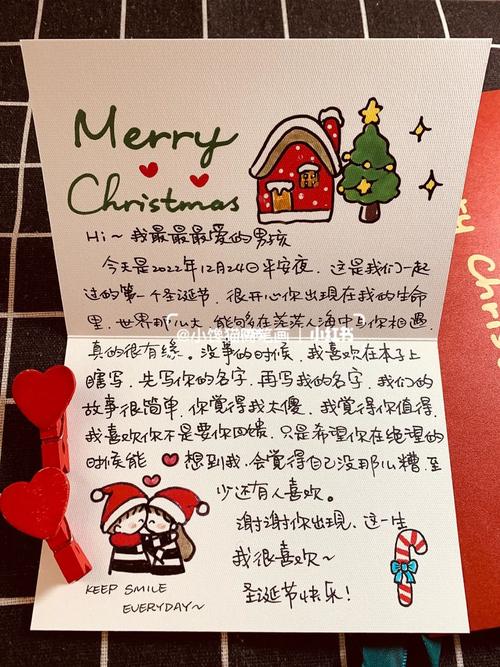 Merry
Christmas
Hi~ 我最最最爱的男孩
今天是2022年12月24日平安夜，这是我们一起
过的第一个圣诞节，很开心你出现在我的生命
里，世界那么大，能够在茫茫人海中与你相遇，
真的很有緣。没事的时候，我喜欢在本子上
瞎写，先写你的名字，再写我的名字，我们的
故事很简单，你覺得我太傻，我覺得你值得，
我喜欢你不是要你回馈，只是希望你在绝望的
时候能 想到我，会覺得自己没那么糟，至
少还有人喜欢。
谢谢你出现，这一生
我很喜欢~
圣诞节快乐！
KEEP SMILE
EVERYDAY~
小红书